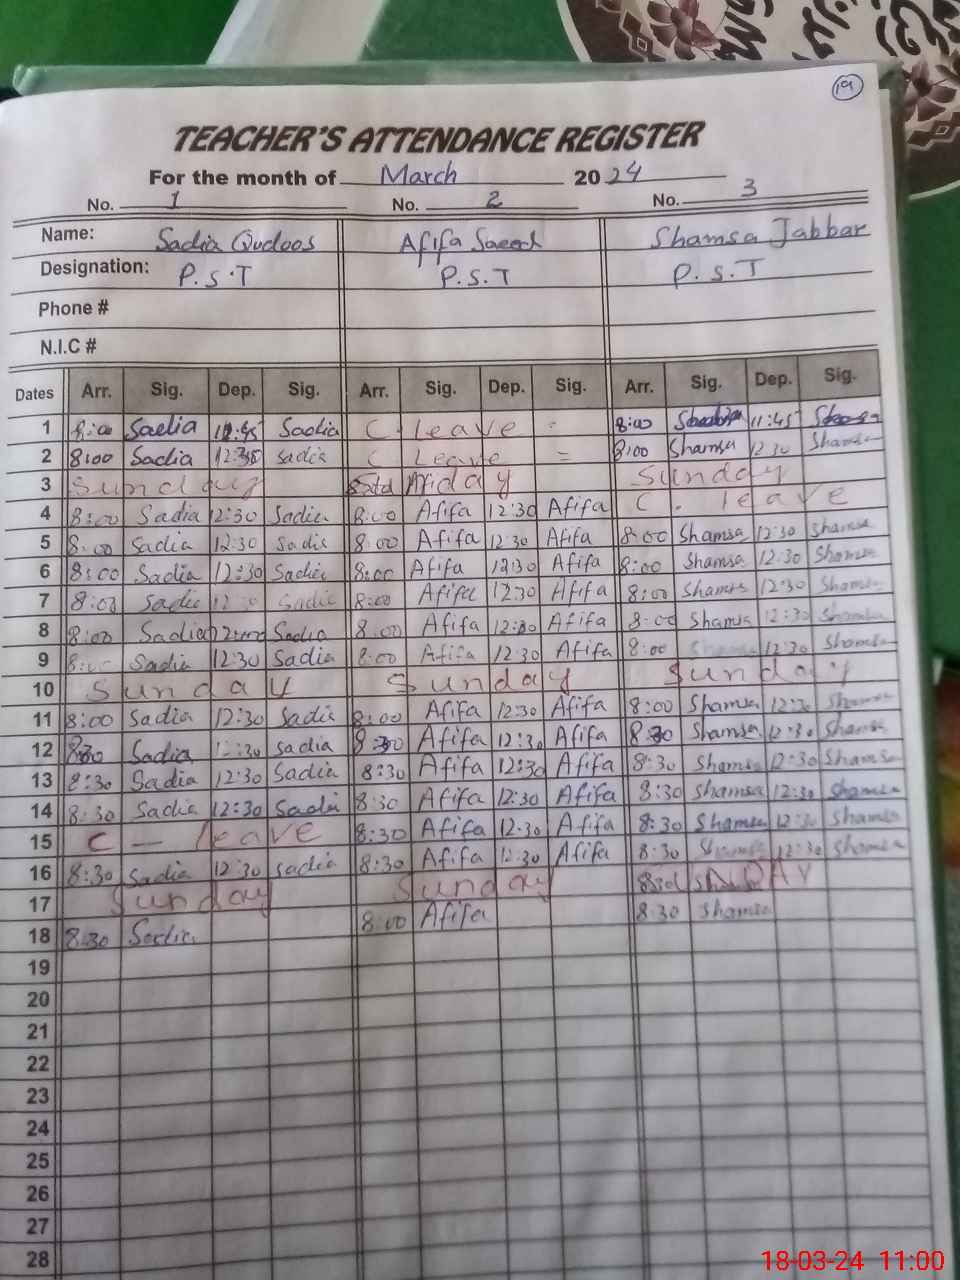 19
TEACHER'S ATTENDANCE REGISTER
For the month of March 2024
No. 1 No. 2 No. 3
Name: Sadia Qudoos Afifa Saeed Shamsa Jabbar
Designation: P.S.T P.S.T P.S.T
Phone #
N.I.C #
Dates Arr. Sig. Dep. Sig. Arr. Sig. Dep. Sig. Arr. Sig. Dep. Sig.
1 8:00 Sadia Sadia C. leave 8:00 11:45
2 8:00 Sadia sadia C Leave = 8:00 Shamsa 12 30 Shamsa
3 Sunday Sunday
4 8:00 Sadia 12:30 Sadia 8:00 Afifa 12:30 Afifa C. leave
5 8:00 Sadia 12:30 Sadia 8:00 Afifa 12:30 Afifa 8:00 Shamsa 12:30 Shamsa
6 8:00 Sadia 12:30 Sadia 8:00 Afifa 12:30 Afifa 8:00 Shamsa 12:30 Shamsa
7 8:00 Sadia Sadia 8:00 Afifa 12:30 Afifa 8:00 Shamsa 12:30 Shamsa
8 8:00 Sadia Sadia 8:00 Afifa 12:30 Afifa 8:00 Shamsa 12:30 Shamsa
9 8:00 Sadia 12:30 Sadia 8:00 Afifa 12:30 Afifa 8:00 12:30 Shamsa
10 Sunday Sunday Sunday
11 8:00 Sadia 12:30 Sadia 8:00 Afifa 12:30 Afifa 8:00 Shamsa 12:30 Shamsa
12 Sadia 12:30 Sadia Afifa 12:30 Afifa Shamsa 12:30 Shamsa
13 8:30 Sadia 12:30 Sadia 8:30 Afifa 12:30 Afifa 8:30 Shamsa 12:30 Shamsa
14 8:30 Sadia 12:30 Sadia 8:30 Afifa 12:30 Afifa 8:30 Shamsa 12:30 Shamsa
15 C - leave 8:30 Afifa 12:30 Afifa 8:30 Shamsa 12:30 Shamsa
16 8:30 Sadia 12:30 sadia 8:30 Afifa 12:30 Afifa 8:30 Shamsa 12:30 Shamsa
17 Sunday Sunday
18 8:30 Sadia 8:00 Afifa 8:30 Shamsa
19
20
21
22
23
24
25
26
27
28
18-03-24 11:00